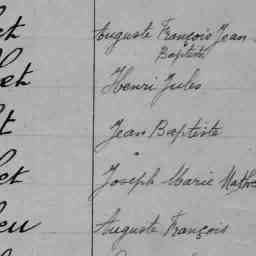 et Auguste François Jean
Baptiste
et Henri Jules
t Jean Baptiste
et Joseph Marie Math
eu Auguste François